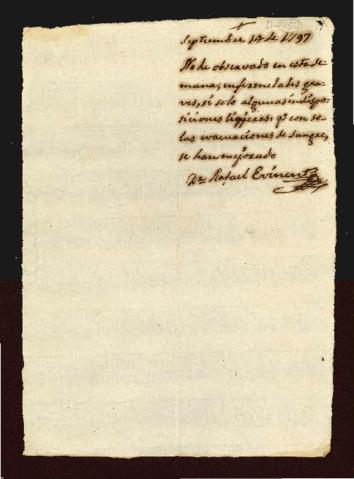 Septiembre 14 de 1797
No he observado en esta se
mana, enfermedades gra-
ves, si solo algunas indispo-
siciones ligeras: qe con so-
las evacuaciones de sangre,
se han mejorado
Dr. Rafael Evinent